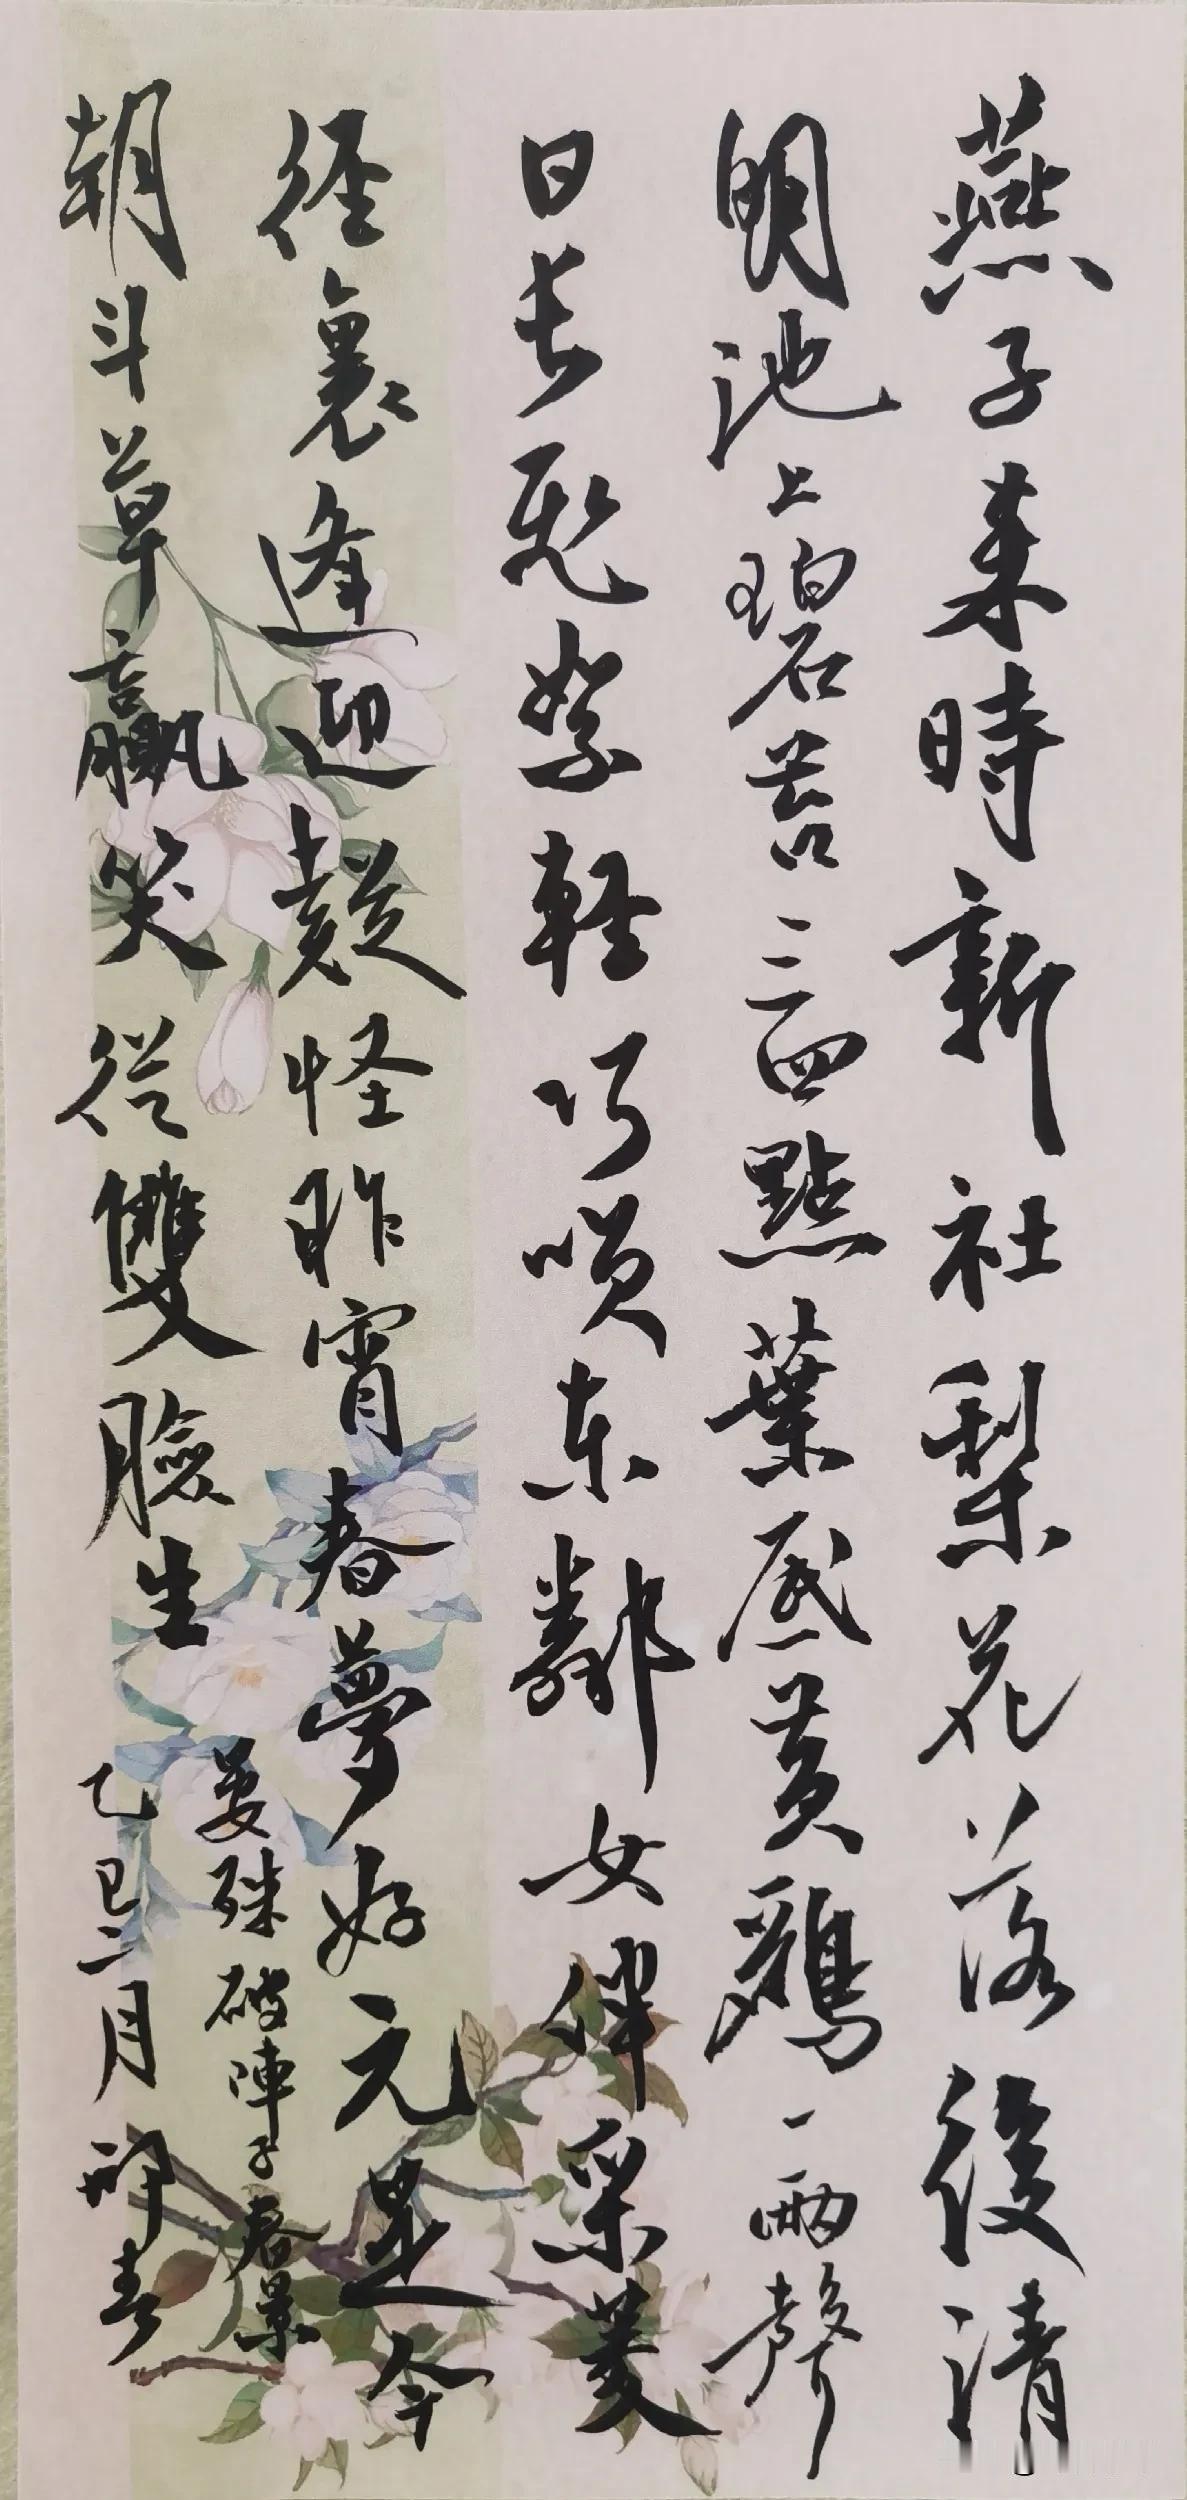 燕子来時新社梨花落後清
明池上碧苔三四點葉底黄鸝一兩聲
日长飛絮軽巧咲东鄰女伴采菱
径裏逢迎疑怪昨宵春夢好元是今
朝斗草贏笑從雙臉生
晏殊破陣子春景
乙巳二月